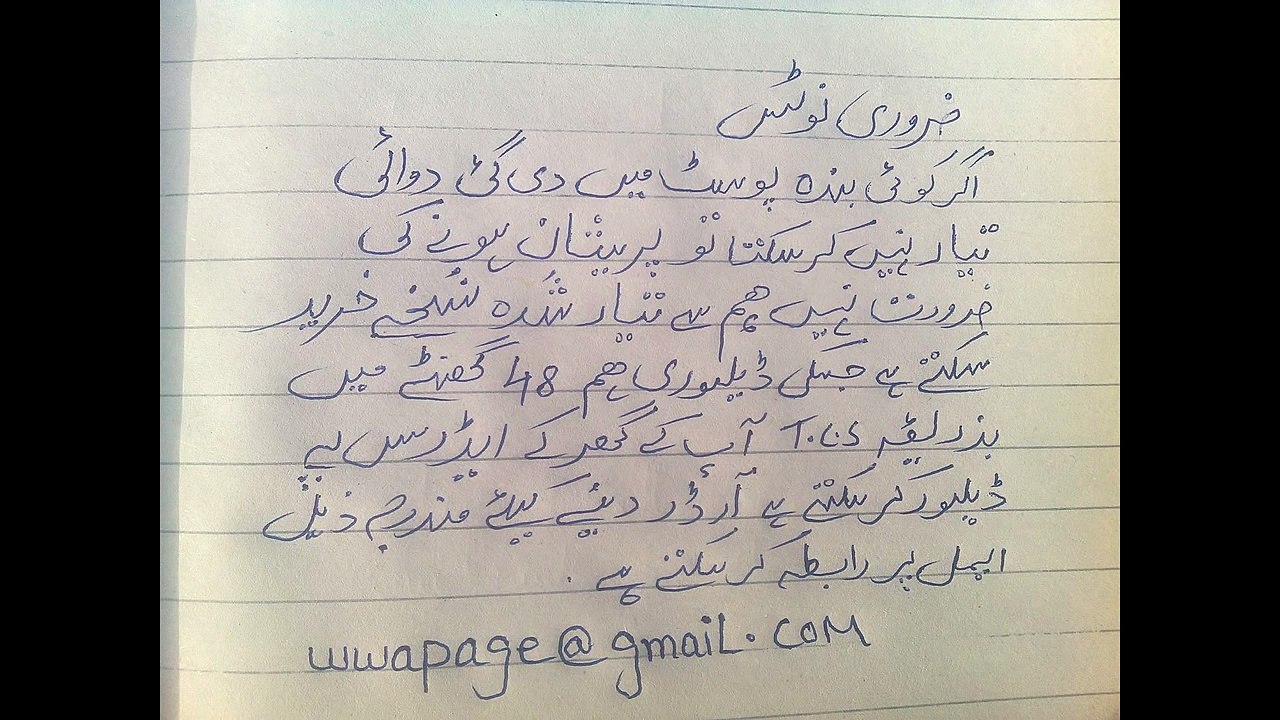 ضروری نوٹس
اگر کوئی بندہ پوسٹ میں دی گئی دوائی
تیار نہیں کر سکتا تو پریشان ہونے کی
ضرورت نہیں ہم سے تیار شُدہ نسُخے خرید
سکتے ہے جسکی ڈیلیوری ہم 48 گھنٹے میں
بذریعہ T.C.S آپ کے گھر کے ایڈرس پے
ڈیلیور کر سکتے ہے آرڈر دینے کیلئے مندرجہ ذیل
ایمل پر رابطہ کر سکتے ہے .
wwapage@gmail.com